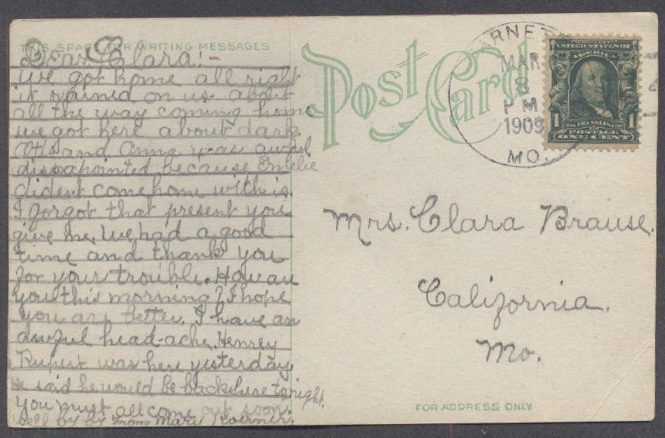 THIS SPACE FOR WRITING MESSAGES
Dear Clara! -
We got home all right
it rained on us about
all the way coming home
we got here about dark
and Anna was awful
dissapointed because
dident come home with us.
I forgot that present you
give me. We had a good
time and thank you
for your trouble. How are
you this morning? I hope
you are better. I have an
awful head-ache. Henrey
Rupert was here yesterday.
He said he would be back here tonight.
You must all come out soon.
Well by by from Mary Koerner.
Post Card
MAR
8
P M
1909
MO.
UNITED STATES OF AMERICA
FRANKLIN
1 POSTAGE 1
ONE CENT
Mrs. Clara Brause.
California.
Mo.
FOR ADDRESS ONLY